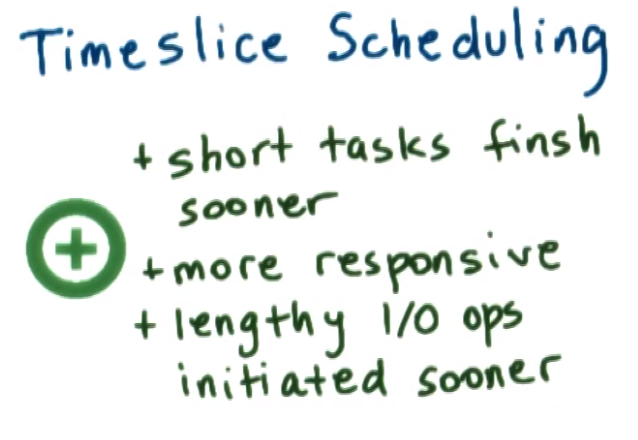 Timeslice Scheduling
+ short tasks finsh
sooner
+ more responsive
+ lengthy I/O ops
initiated sooner